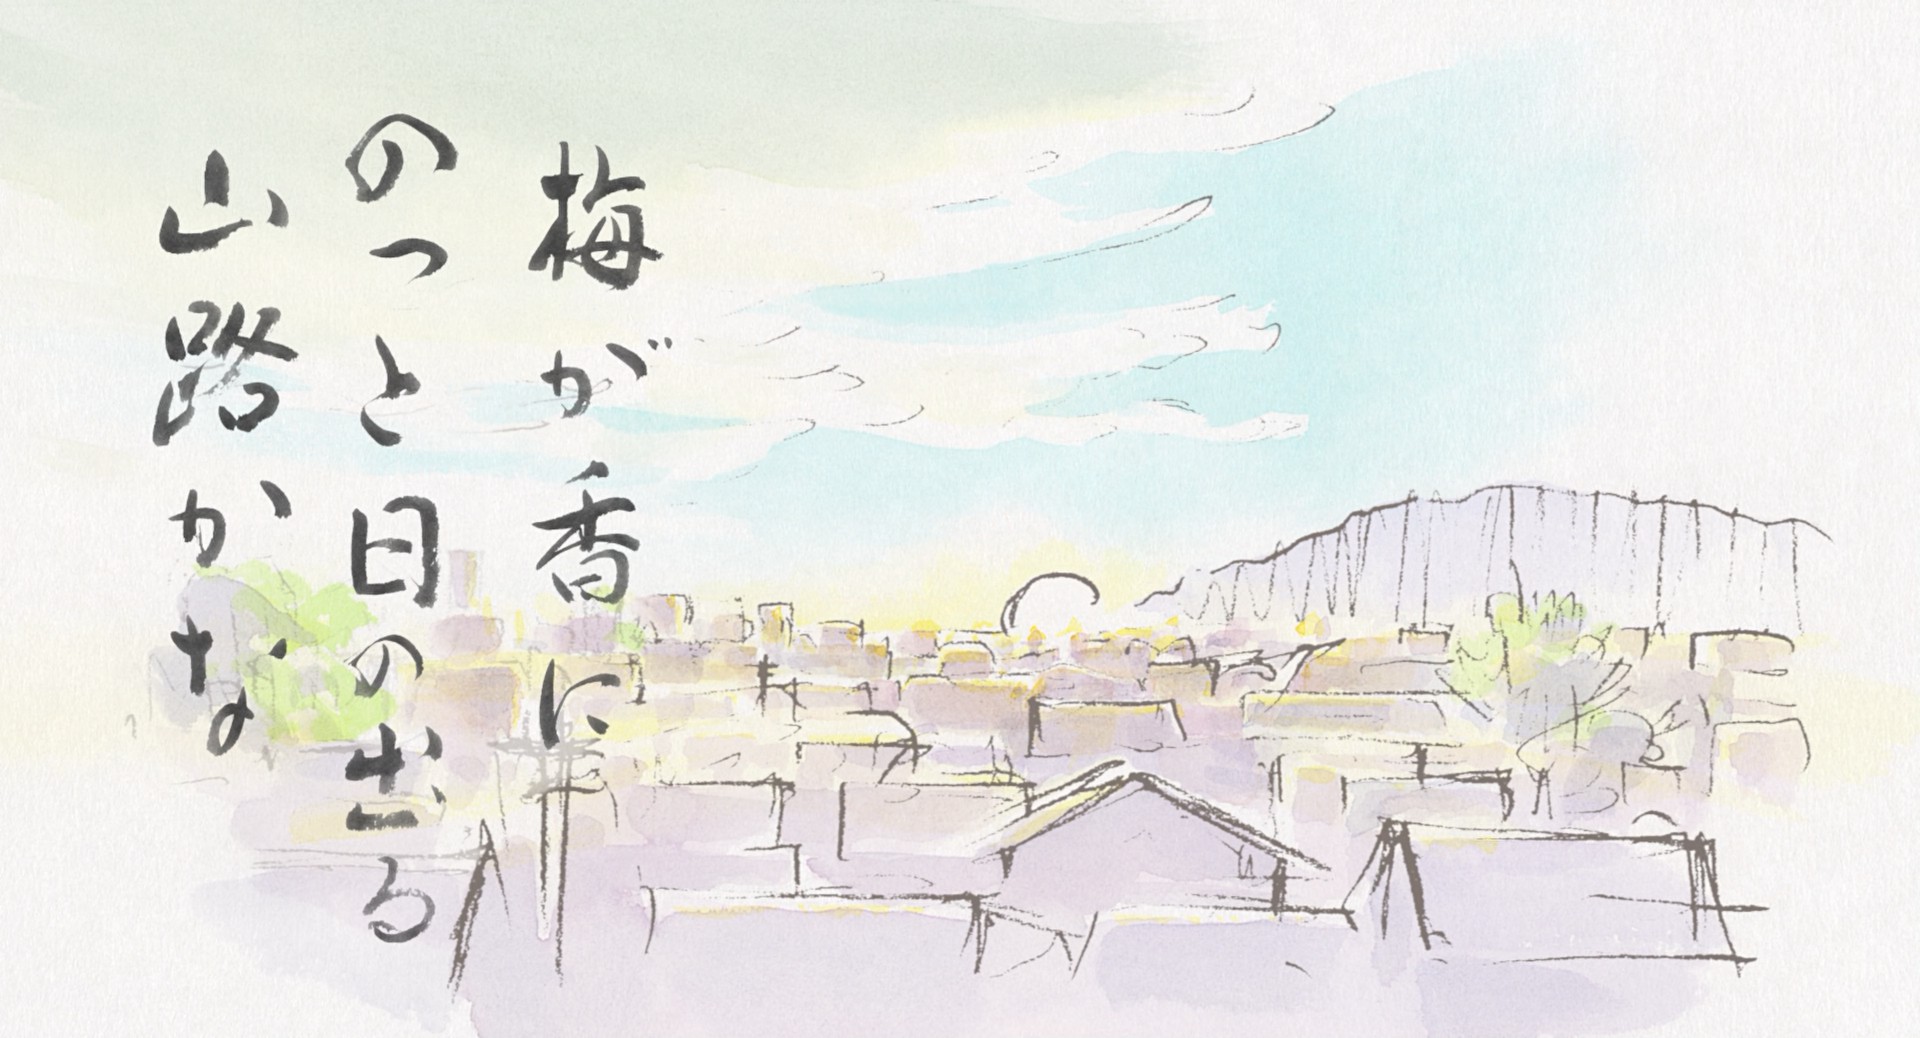 梅が香に
のつと日の出る
山路かな